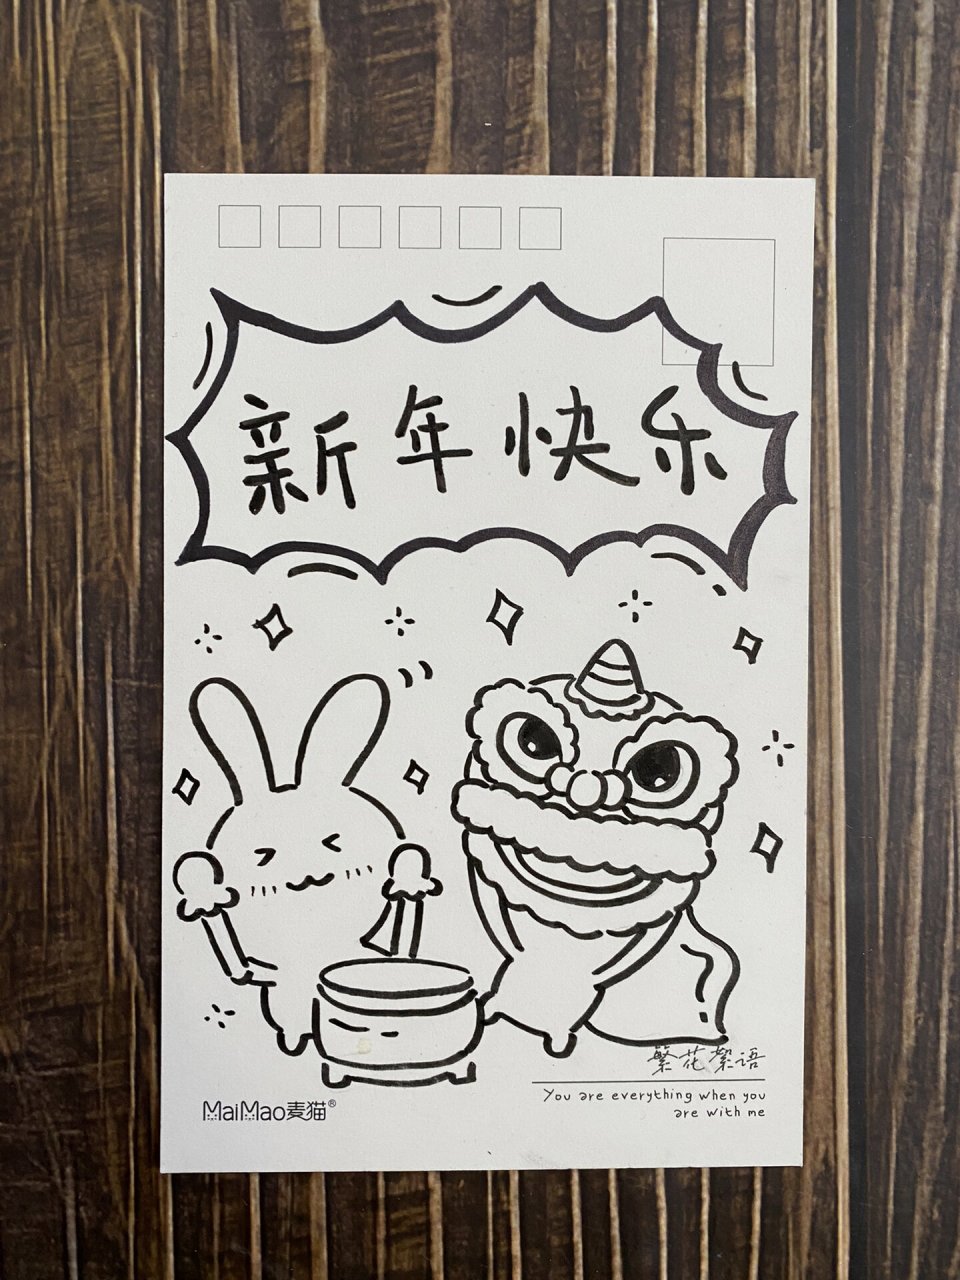 新年快乐
繁花絮语
You are everything when you
are with me
MaiMao麦猫®